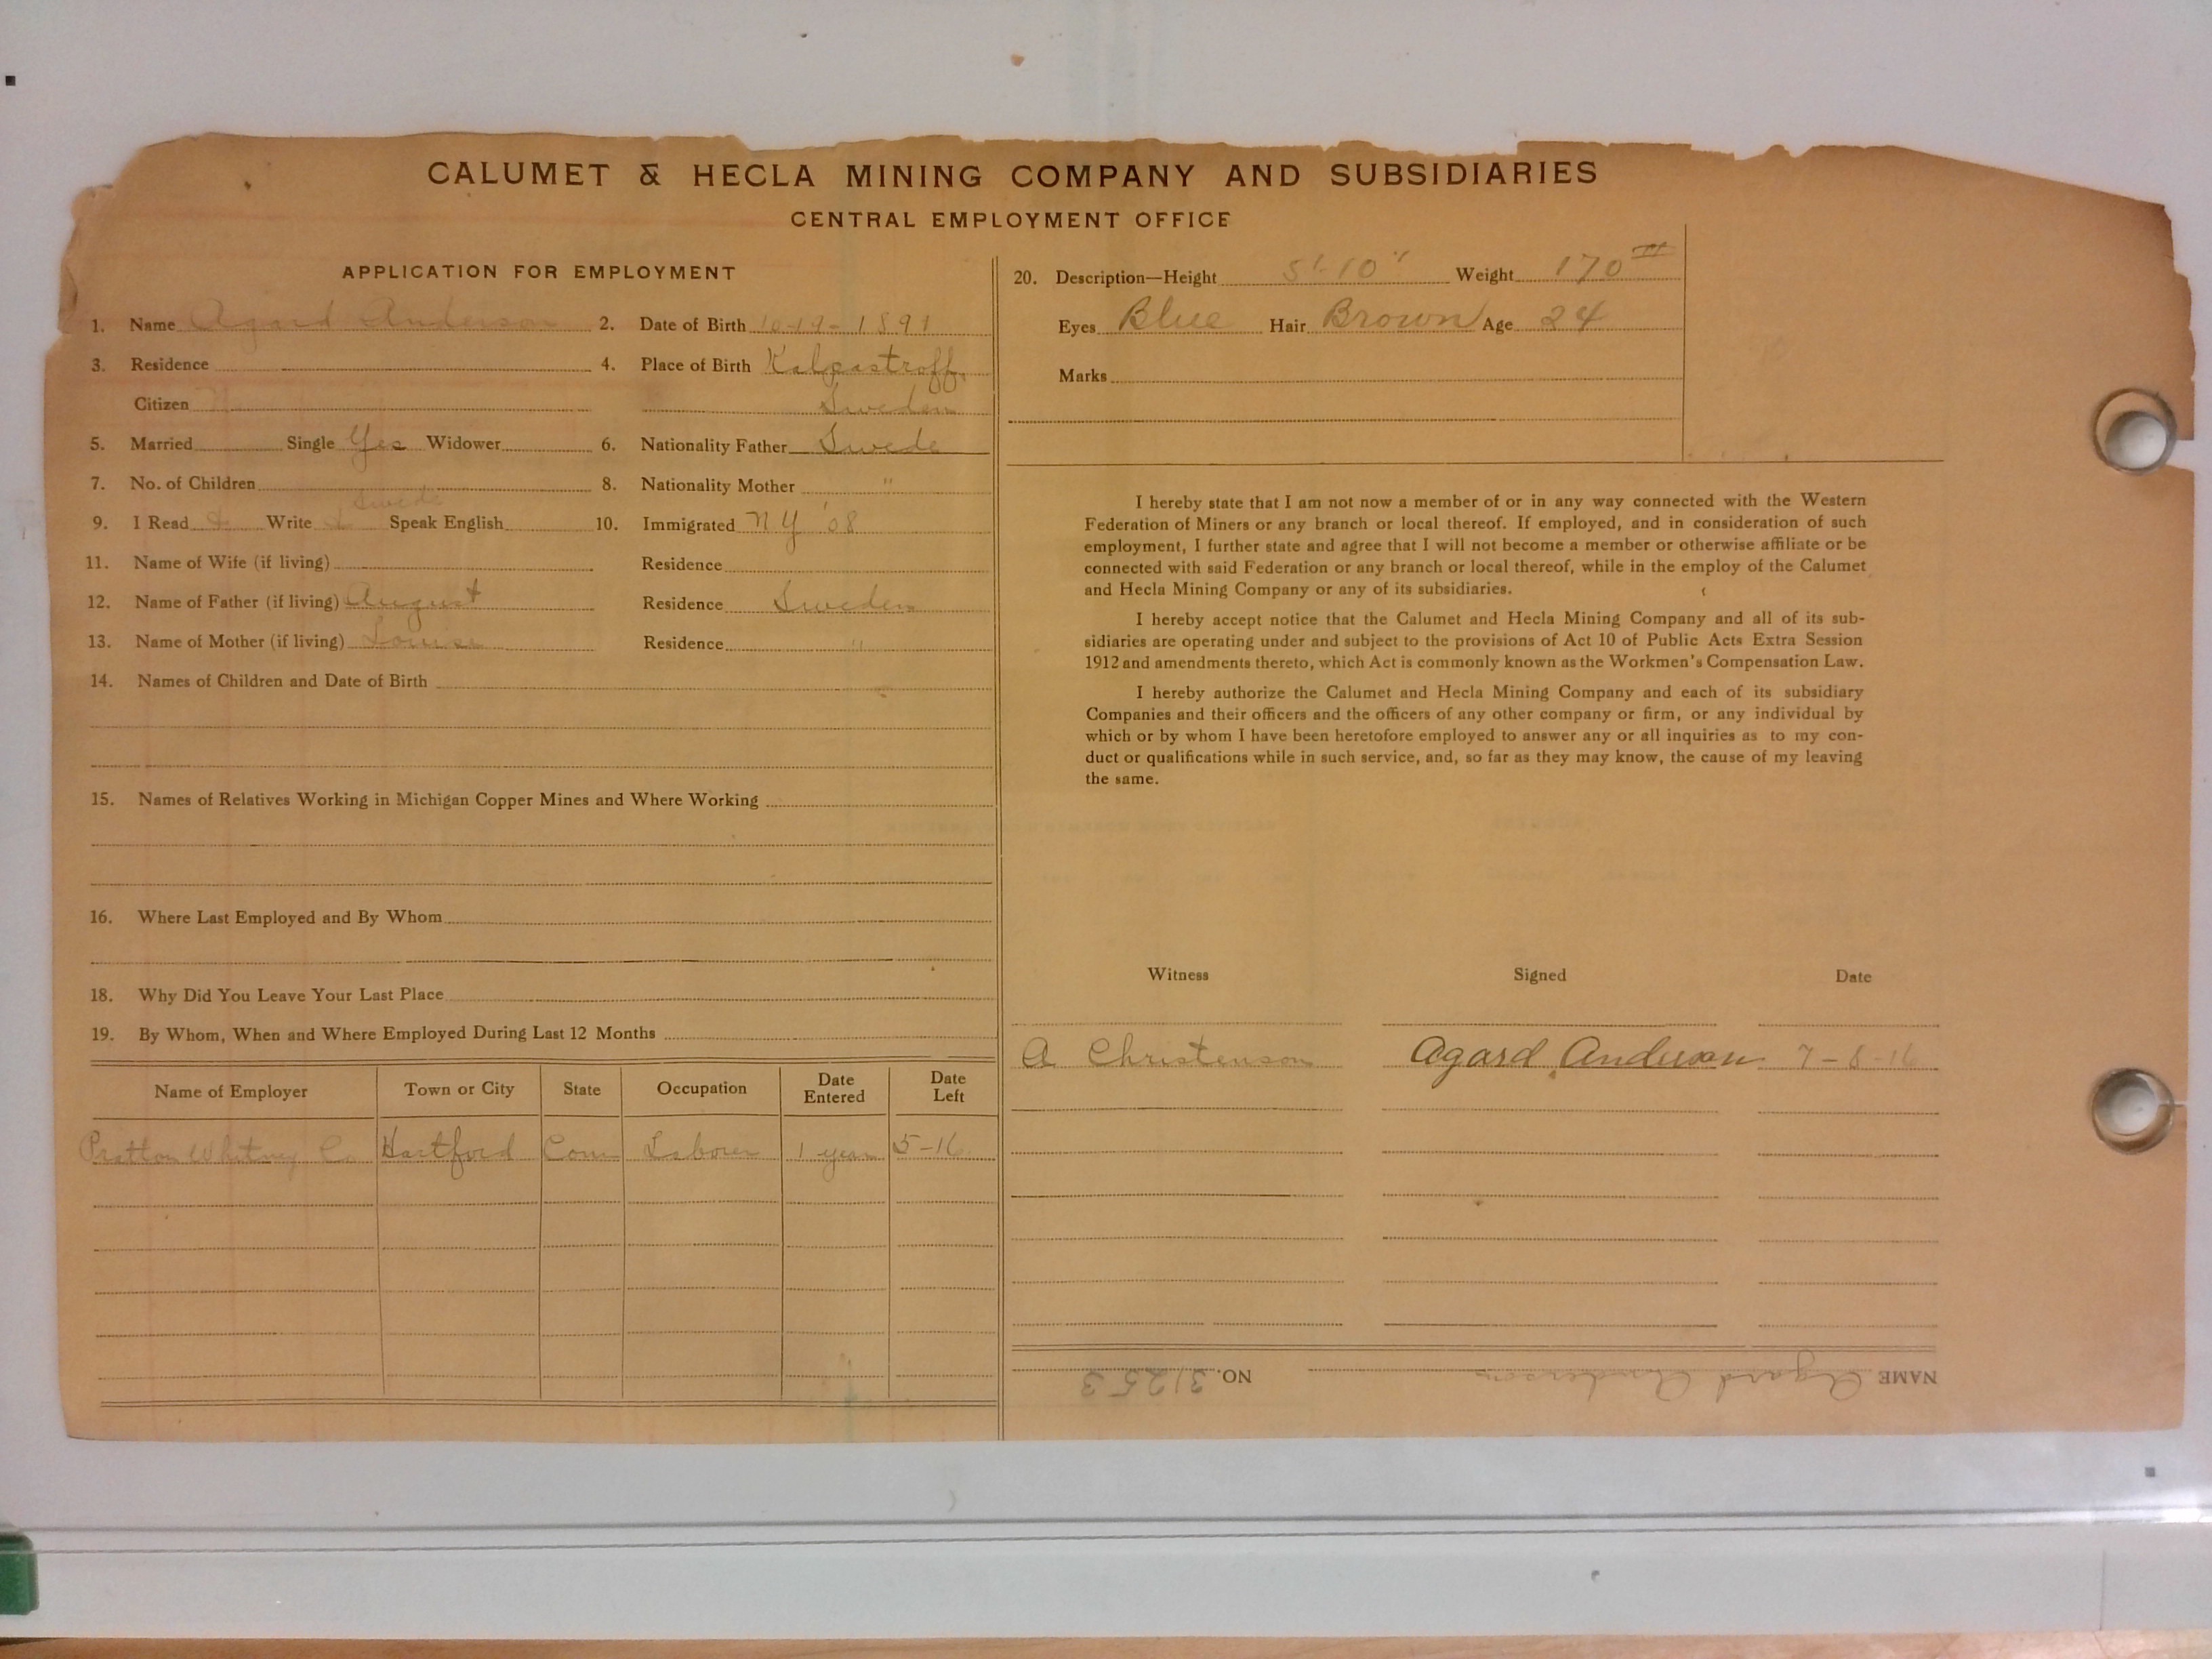 CALUMET & HECLA MINING COMPANY AND SUBSIDIARIES
CENTRAL EMPLOYMENT OFFICE
APPLICATION FOR EMPLOYMENT
1. Name Agard Anderson 2. Date of Birth 10-19-1891
3. Residence 4. Place of Birth
Citizen Sweden
5. Married Single Yes Widower 6. Nationality Father Swede
7. No. of Children 8. Nationality Mother "
Swede
9. I Read Write Speak English 10. Immigrated NY '08
11. Name of Wife (if living) Residence
12. Name of Father (if living) August Residence Sweden
13. Name of Mother (if living) Louise Residence "
14. Names of Children and Date of Birth
15. Names of Relatives Working in Michigan Copper Mines and Where Working
16. Where Last Employed and By Whom
18. Why Did You Leave Your Last Place
19. By Whom, When and Where Employed During Last 12 Months
Name of Employer Town or City State Occupation Date Entered Date Left
Pratton Whitney Co Hartford Conn Laborer 1 year 5-16
20. Description—Height 5'-10" Weight 170 #
Eyes Blue Hair Brown Age 24
Marks
I hereby state that I am not now a member of or in any way connected with the Western
Federation of Miners or any branch or local thereof. If employed, and in consideration of such
employment, I further state and agree that I will not become a member or otherwise affiliate or be
connected with said Federation or any branch or local thereof, while in the employ of the Calumet
and Hecla Mining Company or any of its subsidiaries.
I hereby accept notice that the Calumet and Hecla Mining Company and all of its sub-
sidiaries are operating under and subject to the provisions of Act 10 of Public Acts Extra Session
1912 and amendments thereto, which Act is commonly known as the Workmen's Compensation Law.
I hereby authorize the Calumet and Hecla Mining Company and each of its subsidiary
Companies and their officers and the officers of any other company or firm, or any individual by
which or by whom I have been heretofore employed to answer any or all inquiries as to my con-
duct or qualifications while in such service, and, so far as they may know, the cause of my leaving
the same.
Witness Signed Date
A Christenson Agard Anderson 7-8-16
NAME Agard Anderson NO. 31253